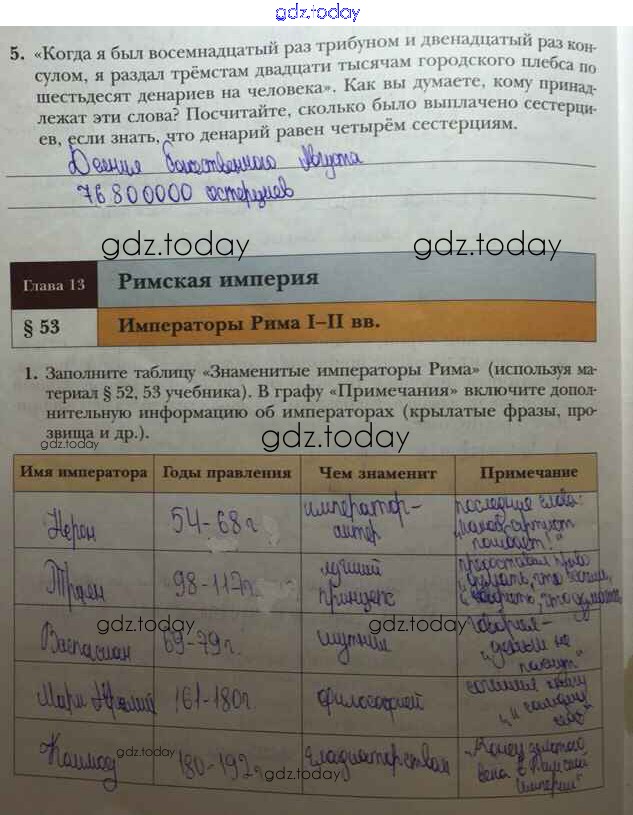 gdz.today
5. «Когда я был восемнадцатый раз трибуном и двенадцатый раз кон-
сулом, я раздал трёмстам двадцати тысячам городского плебса по
шестьдесят денариев на человека». Как вы думаете, кому принад-
лежат эти слова? Посчитайте, сколько было выплачено сестерци-
ев, если знать, что денарий равен четырём сестерциям.
Деяния божественного Августа
76 800000 сестерциев
gdz.today gdz.today
Глава 13 Римская империя
§ 53 Императоры Рима I–II вв.
1. Заполните таблицу «Знаменитые императоры Рима» (используя ма-
териал § 52, 53 учебника). В графу «Примечания» включите допол-
нительную информацию об императорах (крылатые фразы, про-
звища и др.).
gdz.today gdz.today
Имя императора Годы правления Чем знаменит Примечание
Нерон 54-68г. император-
актер
последние слова:
"какой артист
погибает!"
Траян 98-117г. лучший
принцепс
предоставил право
думать, что хотим,
и говорить, что думаем
Васпасиан 69-79г. шутник
говорил-
"деньги не
пахнут"
gdz.today gdz.today
Марк Аврелий 161-180г. философией
сочинил книгу
"К самому
себе"
Коммод 180-192г. гладиаторством
"Конец золотого
века в Римской
Империи"
gdz.today gdz.today